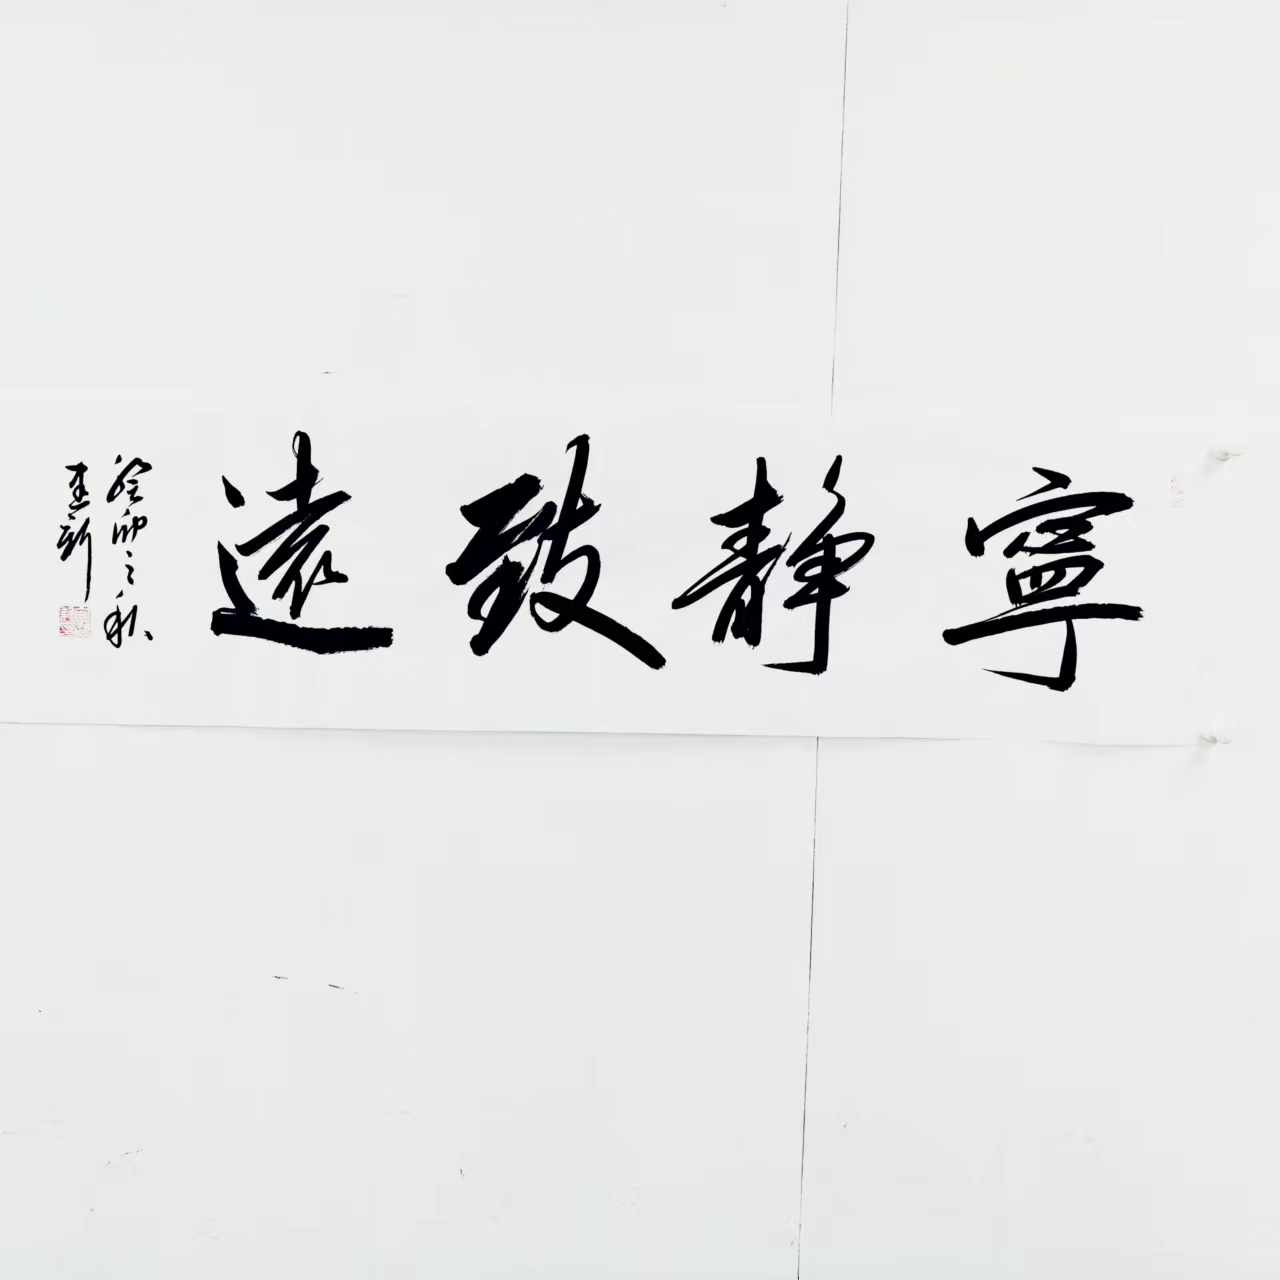 寧靜致遠
癸卯之秋
建新